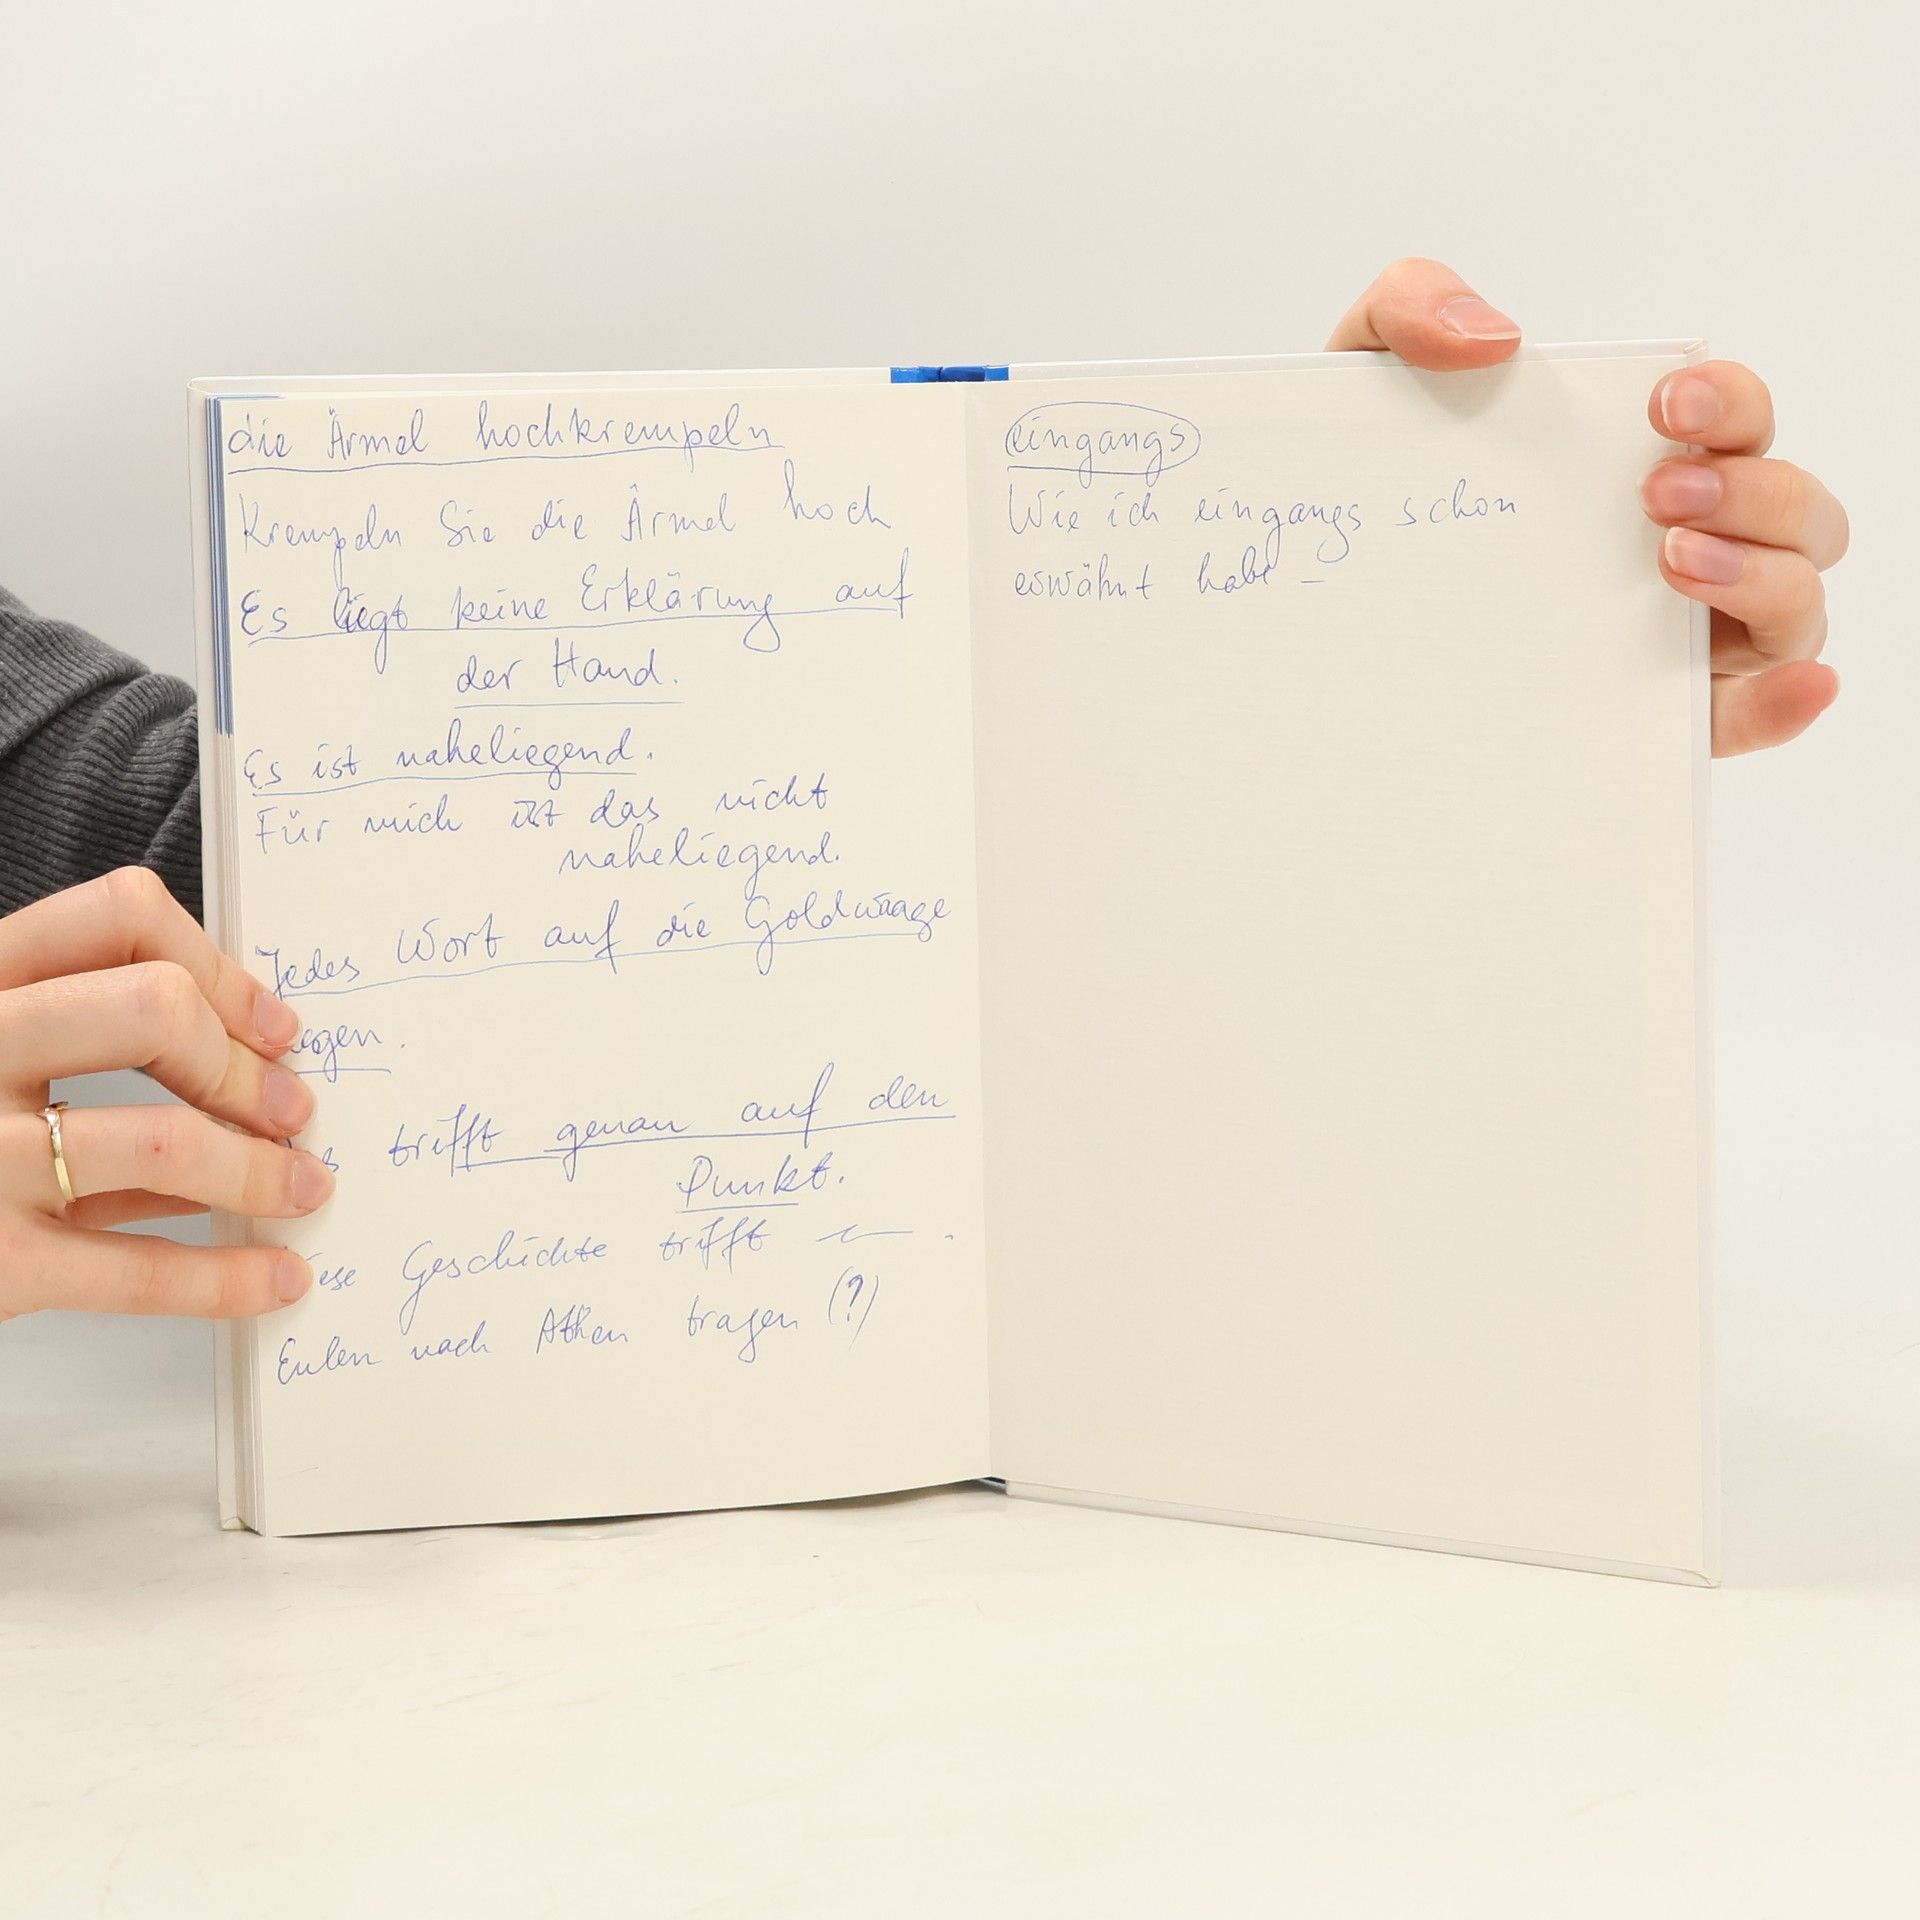 die Ärmel hochkrempeln
Krempeln Sie die Ärmel hoch
Es liegt keine Erklärung auf
der Hand.
Es ist naheliegend.
Für mich ist das nicht
naheliegend.
Jedes Wort auf die Goldwaage
egen.
s trifft genau auf den
Punkt.
ese Geschichte trifft — .
Eulen nach Athen tragen (?)
eingangs
Wie ich eingangs schon
erwähnt habe –